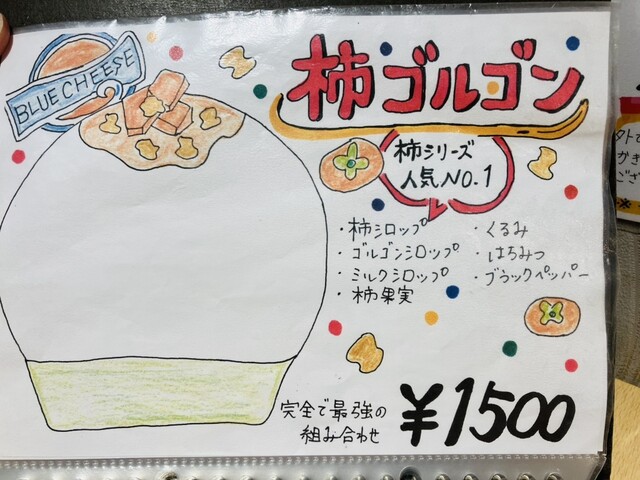 BLUE CHEESE
柿ゴルゴン
柿シリーズ
人気NO.1
・柿シロップ
・ゴルゴンシロップ
・ミルクシロップ
・柿果実
・くるみ
・はちみつ
・ブラックペッパー
完全で最強の
組み合わせ
¥1500